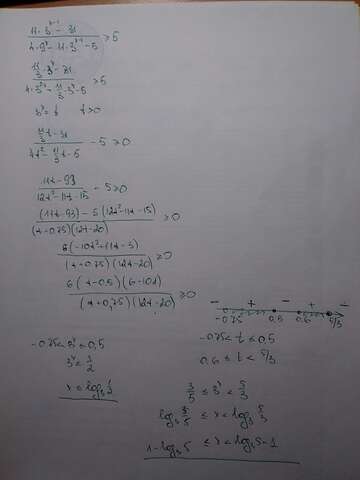 11·3^(x-1) - 31 / 4·9^x - 11·3^(x-1) - 5 ≥ 5
11/3·3^x - 31 / 4·3^(2x) - 11/3·3^x - 5 ≥ 5
3^x = t t > 0
11/3t - 31 / 4t² - 11/3t - 5 - 5 ≥ 0
11t - 93 / 12t² - 11t - 15 - 5 ≥ 0
(11t - 93) - 5(12t² - 11t - 15) / (t + 0.75)(12t - 20) ≥ 0
6(-10t² + 11t - 3) / (t + 0.75)(12t - 20) ≥ 0
6(t - 0.5)(6 - 10t) / (t + 0,75)(12t - 20) ≥ 0
- + - + -
-0.75 0,5 0,6 5/3
-0.75 < 3^x ≤ 0,5
3^x ≤ 1/2
x ≤ log₃ 1/2
-0.75 < t ≤ 0,5
0.6 ≤ t < 5/3
3/5 ≤ 3^x < 5/3
log₃ 3/5 ≤ x < log₃ 5/3
1 - log₃5 ≤ x < log₃5 - 1